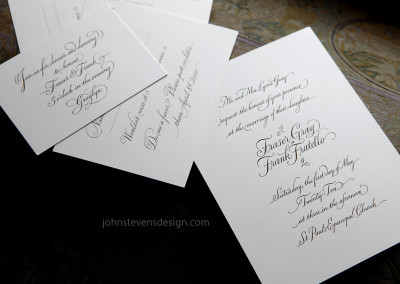 Join us for dinner & dancing
to honor
Fraser & Frank
7 o'clock in the evening
Wouldn't miss it
Do me a favor? Please post my date
than April 1st
Mr. and Mrs. Lyons Gray
request the honor of your presence
at the marriage of their daughter
Fraser Gray
Frank Fratello
Saturday, the first day of May
Twenty Ten
at three in the afternoon
St. Paul's Episcopal Church
johnstevensdesign.com